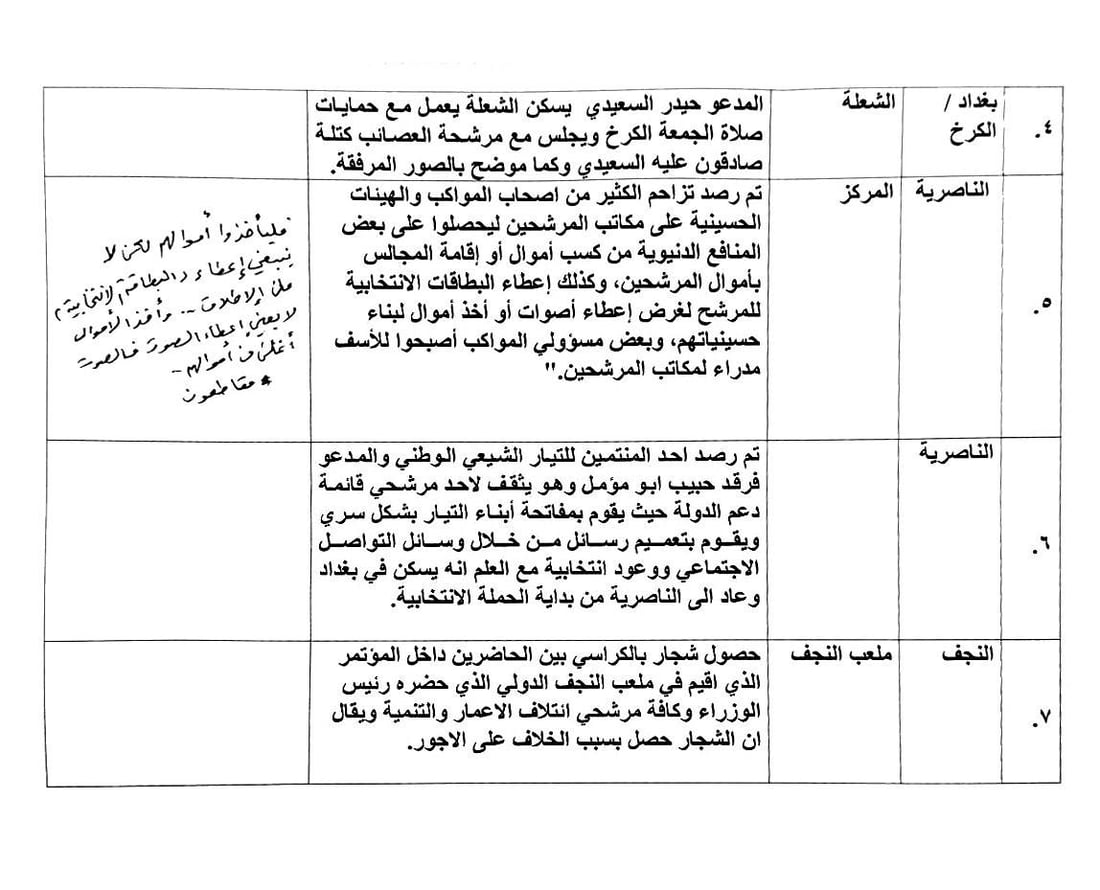 ٤.
بغداد /
الكرخ
الشعلة
المدعو حيدر السعيدي يسكن الشعلة يعمل مع حمايات
صلاة الجمعة الكرخ ويجلس مع مرشحة العصائب كتلة
صادقون عليه السعيدي وكما موضح بالصور المرفقة.
٥.
الناصرية
المركز
تم رصد تزاحم الكثير من اصحاب المواكب والهيئات
الحسينية على مكاتب المرشحين ليحصلوا على بعض
المنافع الدنيوية من كسب أموال أو إقامة المجالس
بأموال المرشحين، وكذلك إعطاء البطاقات الانتخابية
للمرشح لغرض إعطاء أصوات أو أخذ أموال لبناء
حسينياتهم، وبعض مسؤولي المواكب أصبحوا للأسف
مدراء لمكاتب المرشحين."
فليأخذوا أموالهم لكن لا
ينبغي إعطاء (البطاقة الانتخابية)
على الإطلاق .. وأخذ الأموال
لا يعني إعطاء الصوت فالصوت
أغلى من أموالهم ..
* مقاطعون
٦.
الناصرية
تم رصد احد المنتمين للتيار الشيعي الوطني والمدعو
فرقد حبيب ابو مؤمل وهو يثقف لاحد مرشحي قائمة
دعم الدولة حيث يقوم بمفاتحة أبناء التيار بشكل سري
ويقوم بتعميم رسائل من خلال وسائل التواصل
الاجتماعي ووعود انتخابية مع العلم انه يسكن في بغداد
وعاد الى الناصرية من بداية الحملة الانتخابية.
٧.
النجف
ملعب النجف
حصول شجار بالكراسي بين الحاضرين داخل المؤتمر
الذي اقيم في ملعب النجف الدولي الذي حضره رئيس
الوزراء وكافة مرشحي ائتلاف الاعمار والتنمية ويقال
ان الشجار حصل بسبب الخلاف على الاجور.